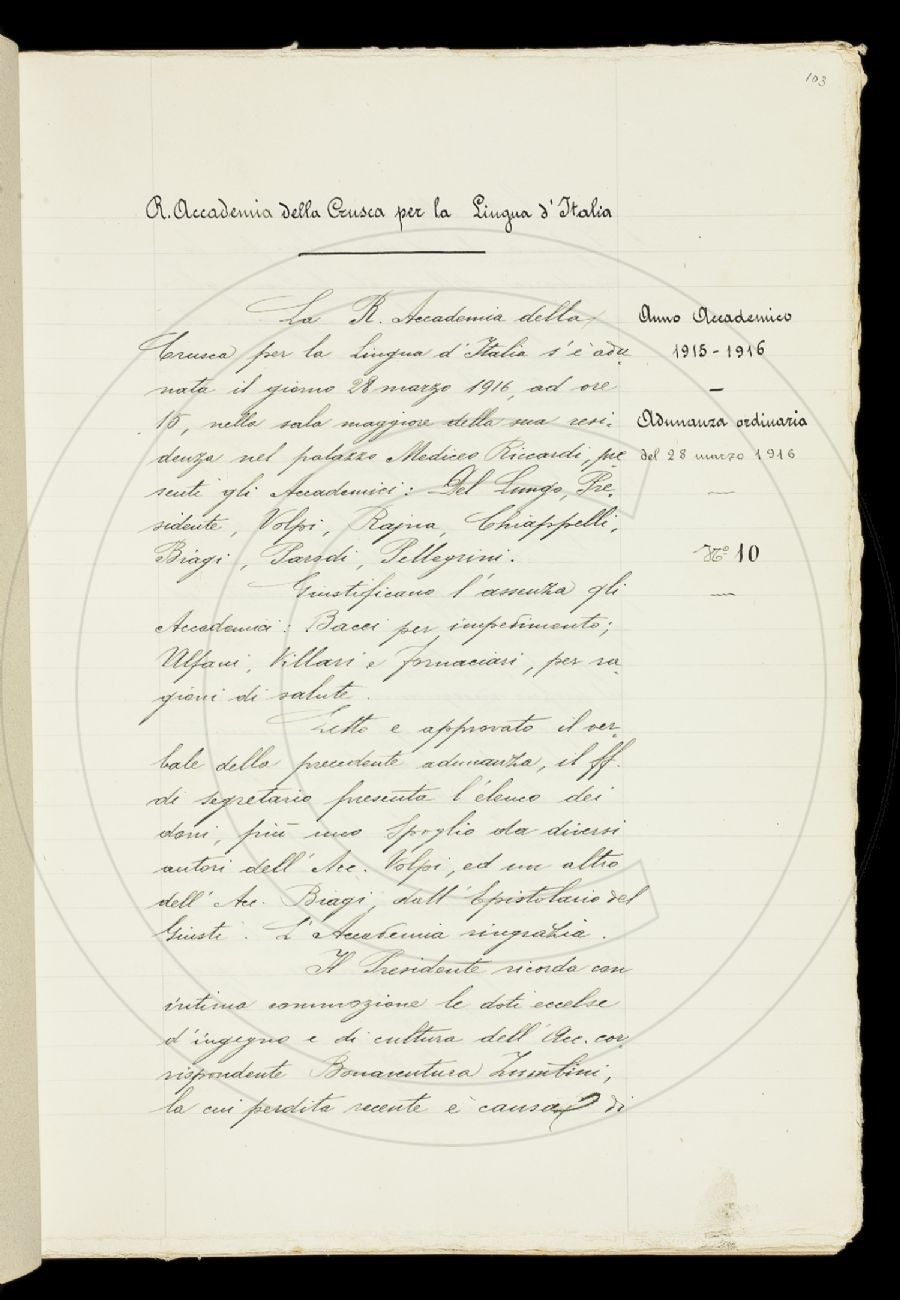 103
R. Accademia della Crusca per la Lingua d'Italia
La R. Accademia della
Crusca per la Lingua d'Italia s'è adu
nata il giorno 28 marzo 1916, ad ore
15, nella sala maggiore della sua resi-
denza nel palazzo Mediceo Riccardi, pre
senti gli Accademici: Del Lungo, Pre-
sidente, Volpi, Rajna, Chiappelli,
Biagi, Parodi, Pellegrini.
Giustificano l'assenza gli
Accademici: Bacci per impedimento;
Alfani, Villari e Fornaciari, per ra-
gioni di salute.
Letto e approvato il ver-
bale della precedente adunanza, il ff.
di segretario presenta l'elenco dei
doni, più uno spoglio da diversi
autori dell'Acc. Volpi, ed un altro
dell'Acc. Biagi, dall'Epistolario del
Giusti. L'Accademia ringrazia.
Il Presidente ricorda con
intima commozione le doti eccelse
d'ingegno e di cultura dell'Acc. cor-
rispondente Bonaventura Zumbini,
la cui perdita recente è causa di
Anno Accademico
1915-1916
Adunanza ordinaria
del 28 marzo 1916
N.º 10